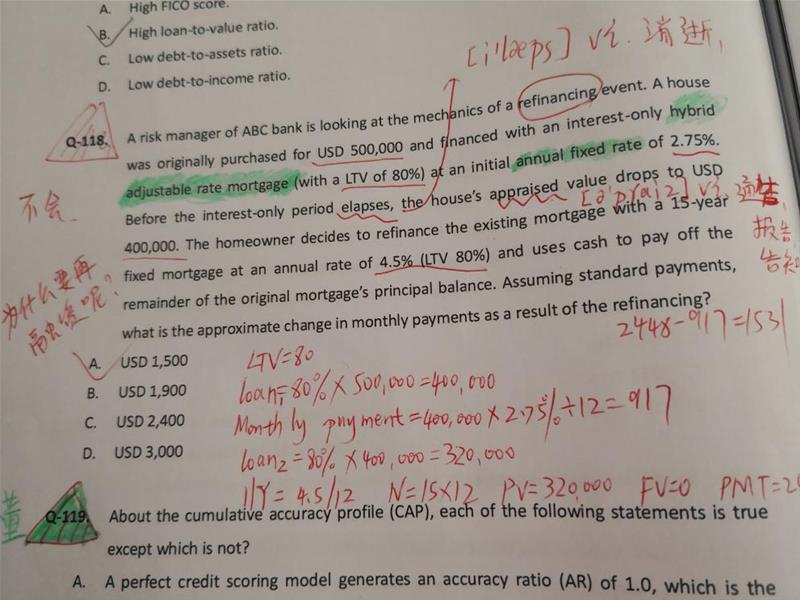 A. High FICO score.
B. High loan-to-value ratio.
C. Low debt-to-assets ratio.
D. Low debt-to-income ratio.
[i'læps] vi. 消逝,
Q-118. A risk manager of ABC bank is looking at the mechanics of a refinancing event. A house
was originally purchased for USD 500,000 and financed with an interest-only hybrid
adjustable rate mortgage (with a LTV of 80%) at an initial annual fixed rate of 2.75%.
Before the interest-only period elapses, the house's appraised value drops to USD
[ə'praiz] vt.
400,000. The homeowner decides to refinance the existing mortgage with a 15-year
fixed mortgage at an annual rate of 4.5% (LTV 80%) and uses cash to pay off the
remainder of the original mortgage's principal balance. Assuming standard payments,
what is the approximate change in monthly payments as a result of the refinancing?
不会.
报告
告知
为什么要再
融资呢?
2448-917=1531
A. USD 1,500
B. USD 1,900
C. USD 2,400
D. USD 3,000
LTV=80
loan₁=80%×500,000=400,000
Monthly payment=400,000×2.75%÷12=917
loan₂=80%×400,000=320,000
I/Y=4.5/12 N=15×12 PV=320,000 FV=0 PMT=2
董
Q-119. About the cumulative accuracy profile (CAP), each of the following statements is true
except which is not?
A. A perfect credit scoring model generates an accuracy ratio (AR) of 1.0, which is the